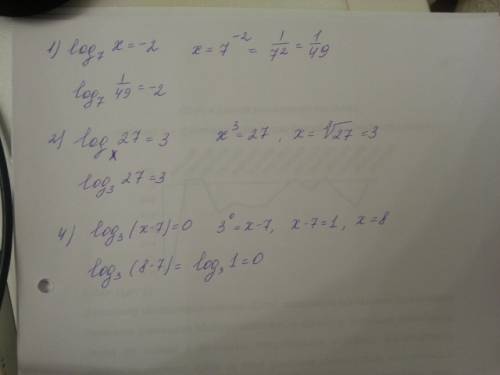 1) log₇ x = -2   x = 7⁻² = 1/7² = 1/49
log₇ 1/49 = -2
2) logₓ 27 = 3   x³ = 27 , x = ∛27 = 3
log₃ 27 = 3
4) log₃ (x-7) = 0   3⁰ = x-7, x-7 = 1, x = 8
log₃ (8-7) = log₃ 1 = 0